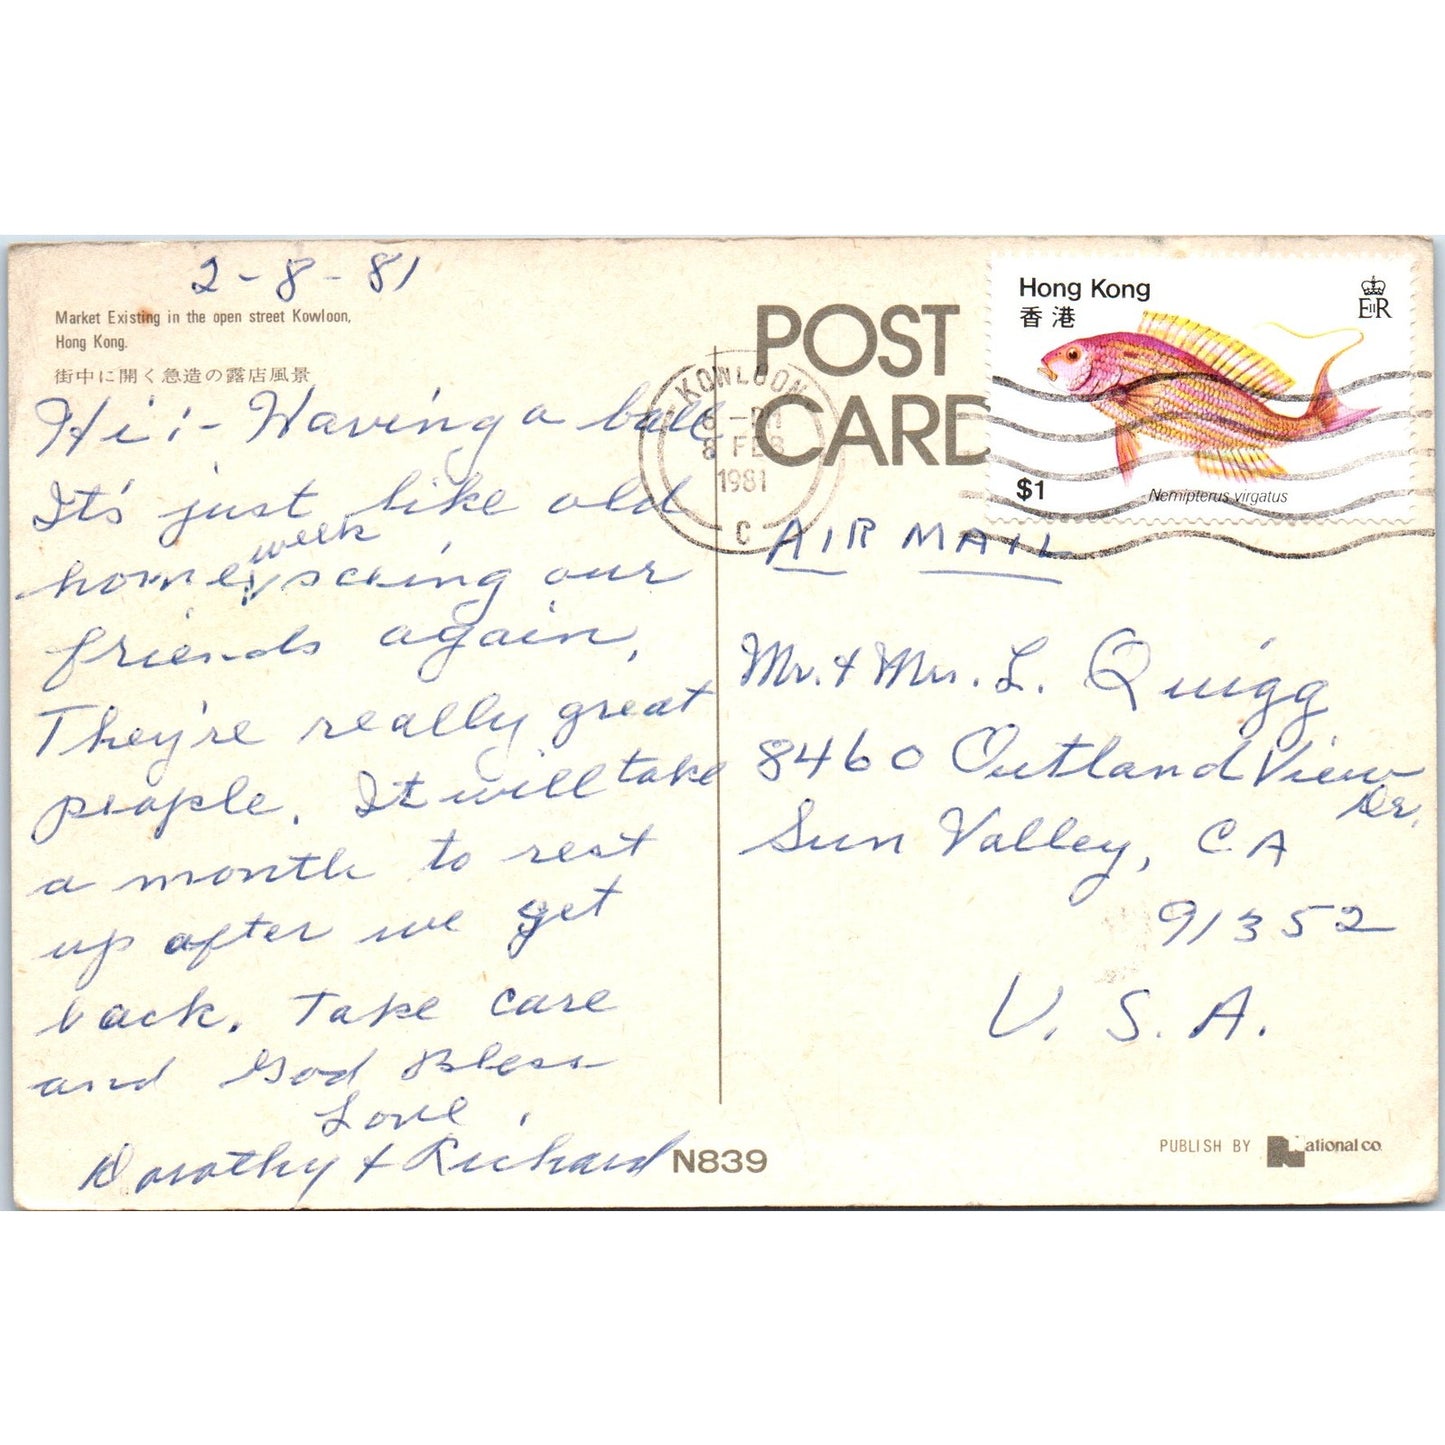 2-8-81
Market Existing in the open street Kowloon,
Hong Kong.
街中に開く急造の露店風景
Hi:- Having a ball
It's just like old
home week seeing our
friends again.
They're really great
people. It will take
a month to rest
up after we get
back. Take care
and God Bless
Love,
Dorothy & Richard
N839
POST
CARD
KOWLOON
8 FEB
1981
C
Hong Kong
香港
EIIR
$1
Nemipterus virgatus
AIR MAIL
Mr. & Mrs. L. Quigg
8460 Outland View
Dr.
Sun Valley, CA
91352
U.S.A.
PUBLISH BY National co.